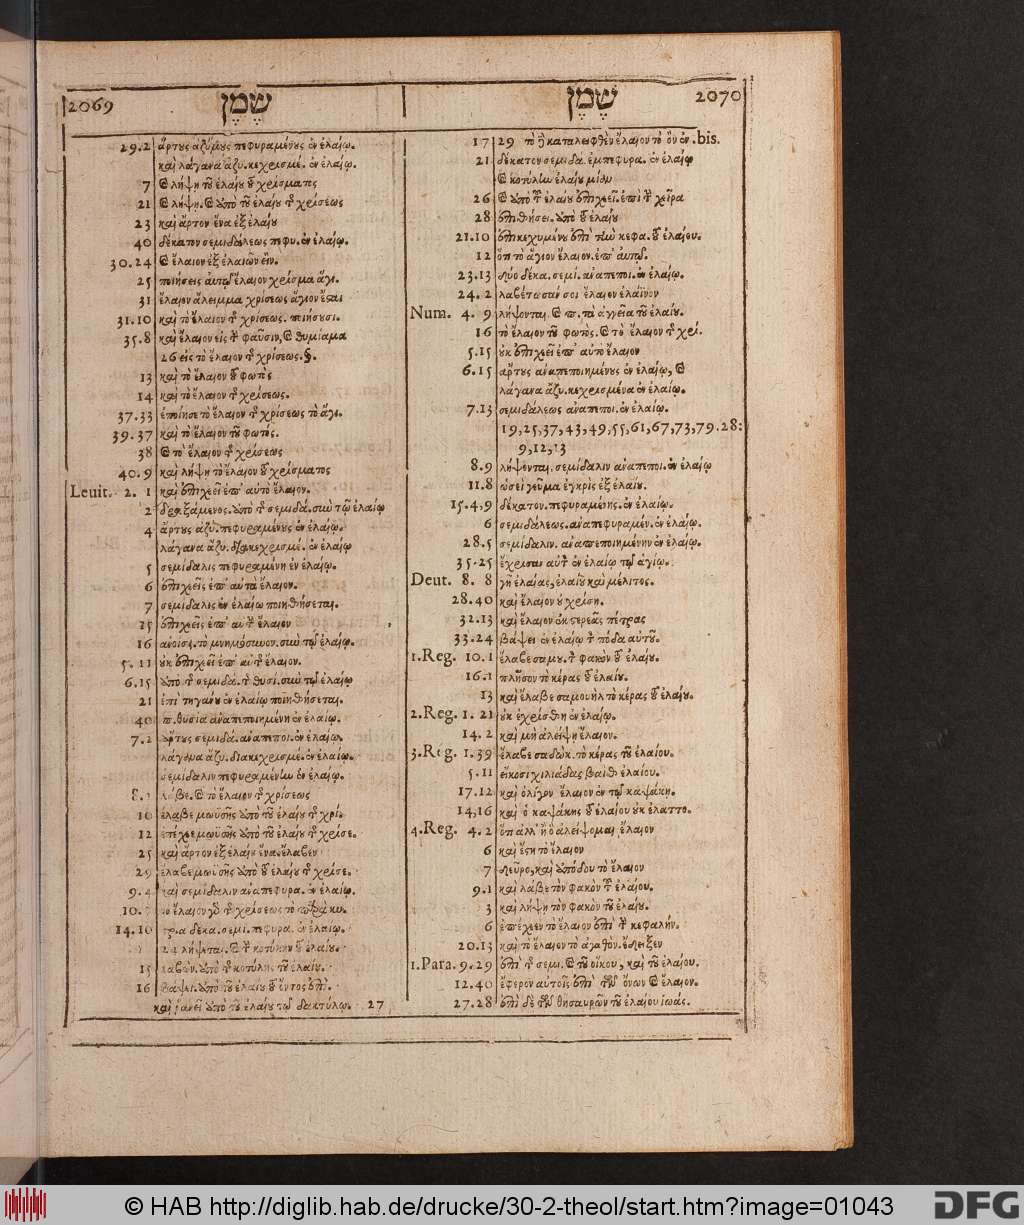 2069 שֶׁמֶן
29.2 ἄρτους ἀζύμους πεφυραμένους ἐν ἐλαίῳ.
καὶ λάγανα ἄζυ. κεχρισμέ. ἐν ἐλαίῳ.
7 καὶ λήψῃ τοῦ ἐλαίου τοῦ χρίσματος
21 καὶ λήψῃ. καὶ ἀπὸ τοῦ ἐλαίου τῆς χρίσεως
23 καὶ ἄρτον ἕνα ἐξ ἐλαίου
40 δέκατον σεμιδάλεως πεφυ. ἐν ἐλαίῳ.
30.24 καὶ ἔλαιον ἐξ ἐλαιῶν εἵν.
25 ποιήσεις αὐτὸ ἔλαιον χρίσμα ἅγι.
31 ἔλαιον ἄλειμμα χρίσεως ἅγιον ἔσται
31.10 καὶ τὸ ἔλαιον τῆς χρίσεως. ποιήσουσι.
35.8 καὶ ἔλαιον εἰς τὸ φαῦσιν, καὶ θυμίαμα
26 εἰς τὸ ἔλαιον τῆς χρίσεως. §.
13 καὶ τὸ ἔλαιον τοῦ φωτὸς
14 καὶ τὸ ἔλαιον τῆς χρίσεως.
37.33 ἐποίησε τὸ ἔλαιον τῆς χρίσεως τὸ ἅγι.
39.37 καὶ τὸ ἔλαιον τοῦ φωτός.
38 καὶ τὸ ἔλαιον τῆς χρίσεως
40.9 καὶ λήψῃ τὸ ἔλαιον τοῦ χρίσματος
Leuit. 2. 1 καὶ ἐπιχεεῖ ἐπ' αὐτὸ ἔλαιον.
2 δραξάμενος. ἀπὸ τῆς σεμιδά. σὺν τῷ ἐλαίῳ
4 ἄρτους ἀζύ. πεφυραμένους ἐν ἐλαίῳ.
λάγανα ἄζυ. διακεχρισμέ. ἐν ἐλαίῳ
5 σεμίδαλις πεφυραμένη ἐν ἐλαίῳ.
6 ἐπιχεεῖς ἐπ' αὐτὰ ἔλαιον.
7 σεμίδαλις ἐν ἐλαίῳ ποιηθήσεται.
15 ἐπιχεεῖς ἐπ' αὐτὴν ἔλαιον
16 ἀνοίσει. τὸ μνημόσυνον. σὺν τῷ ἐλαίῳ.
5. 11 οὐκ ἐπιχεεῖ ἐπ' αὐτὴν ἔλαιον.
6.15 ἀπὸ τῆς σεμιδά. τῆς θυσί. σὺν τῷ ἐλαίῳ
21 ἐπὶ τηγάνου ἐν ἐλαίῳ ποιηθήσεται.
40 π. θυσία ἀναπεποιημένη ἐν ἐλαίῳ.
7.2 ἄρτους σεμιδά. ἀναπεποι. ἐν ἐλαίῳ.
λάγανα ἄζυ. διακεχρισμέ. ἐν ἐλαίῳ.
σεμίδαλιν πεφυραμένην ἐν ἐλαίῳ.
λάβε. καὶ τὸ ἔλαιον τῆς χρίσεως
10 ἔλαβε μωϋσῆς ἀπὸ τοῦ ἐλαίου τῆς χρί.
12 ἐπέχεε μωϋσῆς ἀπὸ τοῦ ἐλαίου τῆς χρίσε.
25 καὶ ἄρτον ἐξ ἐλαίου ἕνα. ἔλαβεν
29 ἔλαβε μωϋσῆς ἀπὸ τοῦ ἐλαίου τῆς χρίσε.
9.4 καὶ σεμίδαλιν ἀναπεφυρα. ἐν ἐλαίῳ.
10. τὸ ἔλαιον γὰρ τῆς χρίσεως τὸ παρὰ κυ.
14.10 τρία δέκα. σεμι. πεφυρα. ἐν ἐλαίῳ.
24 λήψεται. καὶ τὴν κοτύλην τοῦ ἐλαίου.
15 λαβὼν. ἀπὸ τῆς κοτύλης τοῦ ἐλαίου.
16 βάψει. ἀπὸ τοῦ ἐλαίου τοῦ ὄντος ἐπὶ.
καὶ ῥανεῖ ἀπὸ τοῦ ἐλαίου τῷ δακτύλῳ. 27
שֶׁמֶן 2070
17 29 τὸ δὲ καταλειφθὲν ἔλαιον τὸ ὂν ἐν. bis.
21 δέκατον σεμιδά. ἐμπεφυρα. ἐν ἐλαίῳ
καὶ κοτύλην ἐλαίου μίαν
26 καὶ ἀπὸ τοῦ ἐλαίου ἐπιχεεῖ. ἐπὶ τὴν χεῖρα
28 ἐπιθήσει. ἀπὸ τοῦ ἐλαίου
21.10 ἐπικεχυμένου ἐπὶ τὴν κεφα. τοῦ ἐλαίου.
12 ὅτι τὸ ἅγιον ἔλαιον. ἐπ' αὐτῷ.
23.13 δύο δέκα. σεμί. ἀναπεποι. ἐν ἐλαίῳ.
24. 2 λαβέτωσάν σοι ἔλαιον ἐλάϊνον
Num. 4. 9 λήψονται. καὶ π. τὰ ἀγγεῖα τοῦ ἐλαίου.
16 τὸ ἔλαιον τοῦ φωτὸς. καὶ τὸ ἔλαιον τῆς χρί.
5.15 οὐκ ἐπιχεεῖ ἐπ' αὐτὸ ἔλαιον
6.15 ἄρτους ἀναπεποιημένους ἐν ἐλαίῳ, καὶ
λάγανα ἄζυ. κεχρισμένα ἐν ἐλαίῳ.
7.13 σεμιδάλεως ἀναπεποι. ἐν ἐλαίῳ.
19,25,37,43,49,55,61,67,73,79.28:
9,12,13
8.9 λήψονται. σεμίδαλιν ἀναπεποι. ἐν ἐλαίῳ
11.8 ὡσεὶ γεῦμα ἐγκρὶς ἐξ ἐλαίου.
15.4,9 δέκατον. πεφυραμένης ἐν ἐλαίῳ.
6 σεμιδάλεως. ἀναπεφυραμέν. ἐν ἐλαίῳ.
28.5 σεμίδαλιν. ἀναπεποιημένην ἐν ἐλαίῳ.
35.25 ἔχρισαν αὐτὸν ἐν ἐλαίῳ τῷ ἁγίῳ.
Deut. 8. 8 γῆ ἐλαίας, ἐλαίου καὶ μέλιτος.
28.40 καὶ ἔλαιον οὐ χρίσῃ.
32.13 καὶ ἔλαιον ἐκ στερεᾶς πέτρας
33.24 βάψει ἐν ἐλαίῳ τὸν πόδα αὐτοῦ.
1.Reg. 10.1 ἔλαβε σαμου. τὸν φακὸν τοῦ ἐλαίου.
16.1 πλῆσον τὸ κέρας τοῦ ἐλαίου.
13 καὶ ἔλαβε σαμουὴλ τὸ κέρας τοῦ ἐλαίου.
2.Reg. 1. 21 οὐκ ἐχρίσθη ἐν ἐλαίῳ.
14. 2 καὶ μὴ ἀλείψῃ ἔλαιον.
3.Reg. 1.39 ἔλαβε σαδὼκ. τὸ κέρας τοῦ ἐλαίου.
5.11 εἴκοσι χιλιάδας βαὶθ ἐλαίου.
17.12 καὶ ὀλίγον ἔλαιον ἐν τῷ καψάκῃ.
14,16 καὶ ὁ καψάκης τοῦ ἐλαίου οὐκ ἐλαττο.
4.Reg. 4.2 ὅτι ἀλλ' ἢ ὃ ἀλείψομαι ἔλαιον
6 καὶ ἔστη τὸ ἔλαιον
7 δεῦρο, καὶ ἀπόδου τὸ ἔλαιον
9.1 καὶ λάβε τὸν φακὸν τοῦ ἐλαίου.
3 καὶ λήψῃ τὸν φακὸν τοῦ ἐλαίου.
6 ἐπέχεεν τὸ ἔλαιον ἐπὶ τὴν κεφαλήν.
20.13 καὶ τὸ ἔλαιον τὸ ἀγαθὸν. ἔδειξεν
1.Para. 9.29 ἐπὶ τῆς σεμι. καὶ τοῦ οἴκου, καὶ τοῦ ἐλαίου.
12.40 ἔφερον αὐτοῖς ἐπὶ τῶν ὄνων καὶ ἔλαιον.
27.28 ἐπὶ δὲ τῶν θησαυρῶν τοῦ ἐλαίου ἰωάς.
© HAB http://diglib.hab.de/drucke/30-2-theol/start.htm?image=01043
DFG